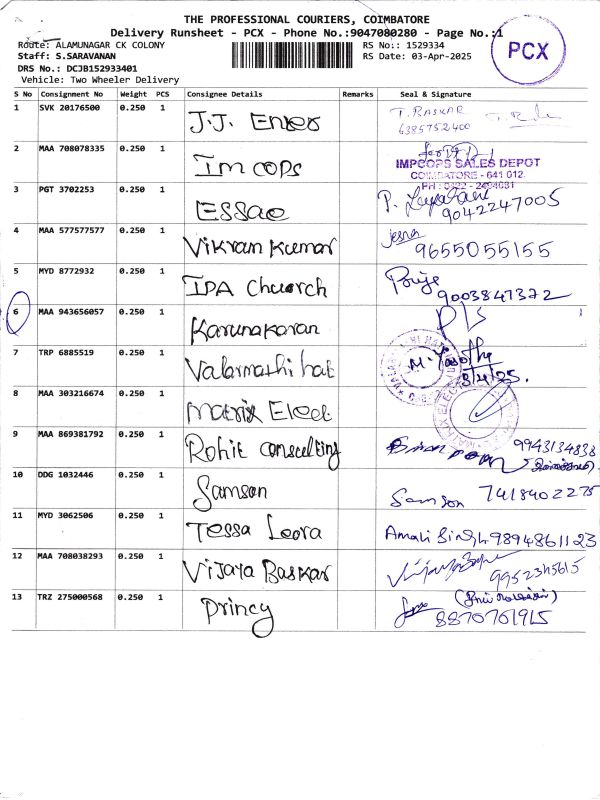 THE PROFESSIONAL COURIERS, COIMBATORE
Delivery Runsheet - PCX - Phone No.:9047080280 - Page No.:1
Route: ALAMUNAGAR CK COLONY RS No:: 1529334
Staff: S.SARAVANAN RS Date: 03-Apr-2025
DRS No.: DCJB152933401
Vehicle: Two Wheeler Delivery
PCX
S No Consignment No Weight PCS Consignee Details Remarks Seal & Signature
1 SVK 20176500 0.250 1 J.J. Enter T. BASKAR
6385752400
2 MAA 708078335 0.250 1 Im cops
IMPCOPS SALES DEPOT
COIMBATORE - 641 012.
PH : 0422 - 2494031
3 PGT 3702253 0.250 1 ESSae 9042247005
4 MAA 577577577 0.250 1 Vikram Kumar 9655055155
5 MYD 8772932 0.250 1 IPA Chuorch 9003847372
6 MAA 943656057 0.250 1 Karunakaran
7 TRP 6885519 0.250 1 Valarmathi hat M. Yasotha
3/4/25.
8 MAA 303216674 0.250 1 Matrix Elect
9 MAA 869381792 0.250 1 Rohit consulting 9943134838
10 DDG 1032446 0.250 1 Samson Samson 7418402275
11 MYD 3062506 0.250 1 Tessa Leora Amali Singh 9894861123
12 MAA 708038293 0.250 1 Vijaya Baskar 9952345615
13 TRZ 275000568 0.250 1 Princy 8870761915